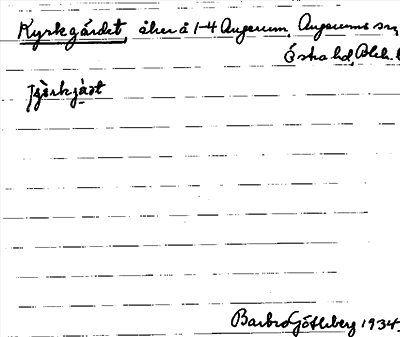 Kyrkgärdet, åker å 1-4 Augerum, Augerums sn,
Östra hd, Blek. l
Barbro Götlberg 1934.